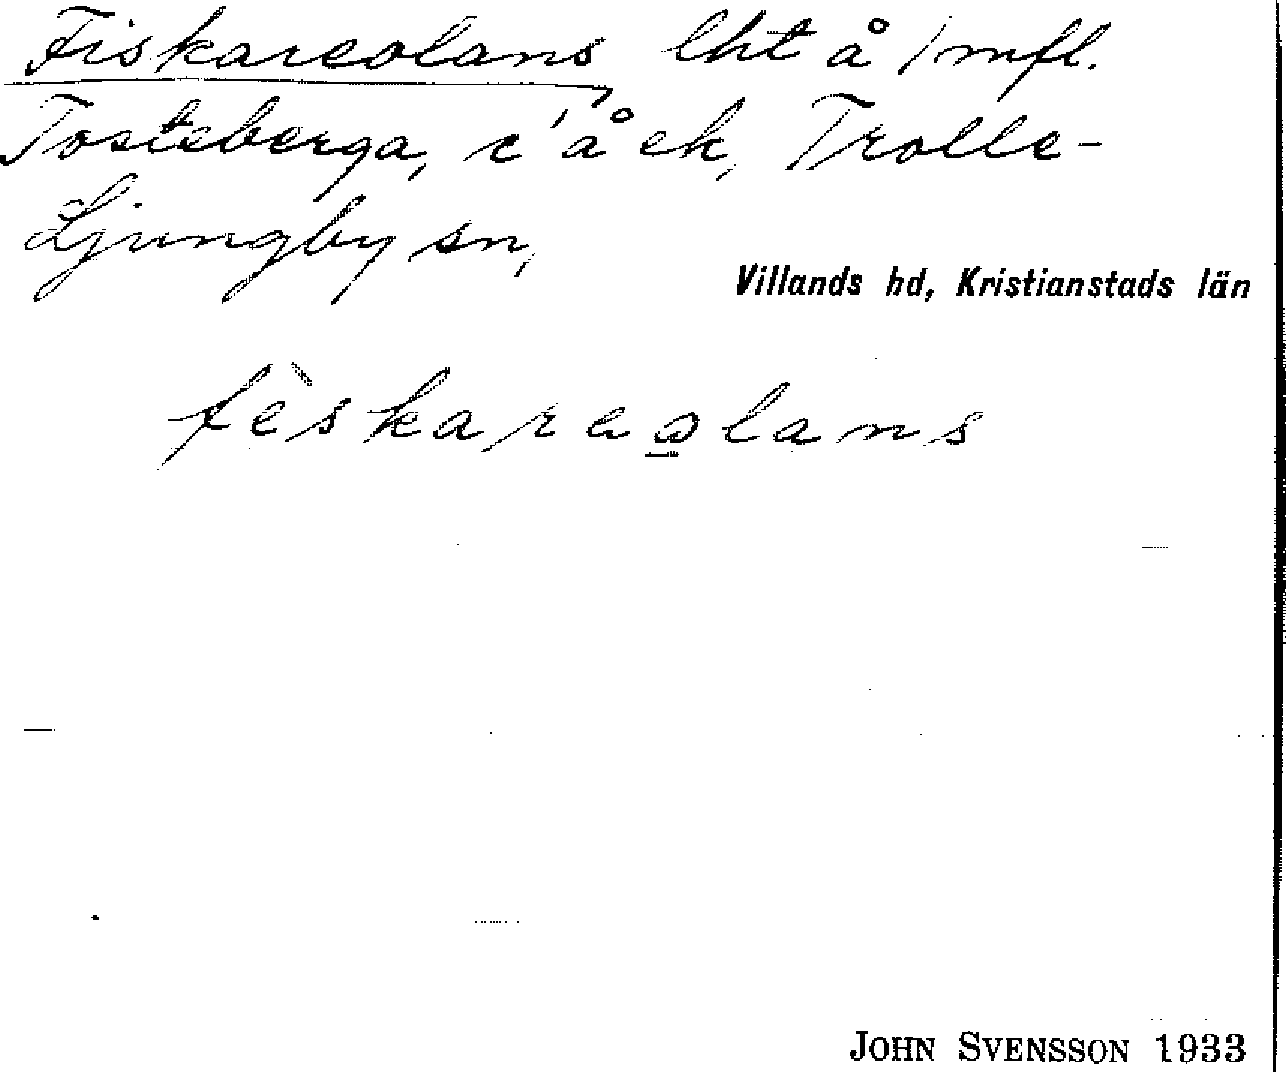 Fiskareolans, lht å 1 mfl.
Tosteberga, r'å ek, Trolle-
Ljungby sn,
Villands hd, Kristianstads län
fèskareolans
JOHN SVENSSON 1933